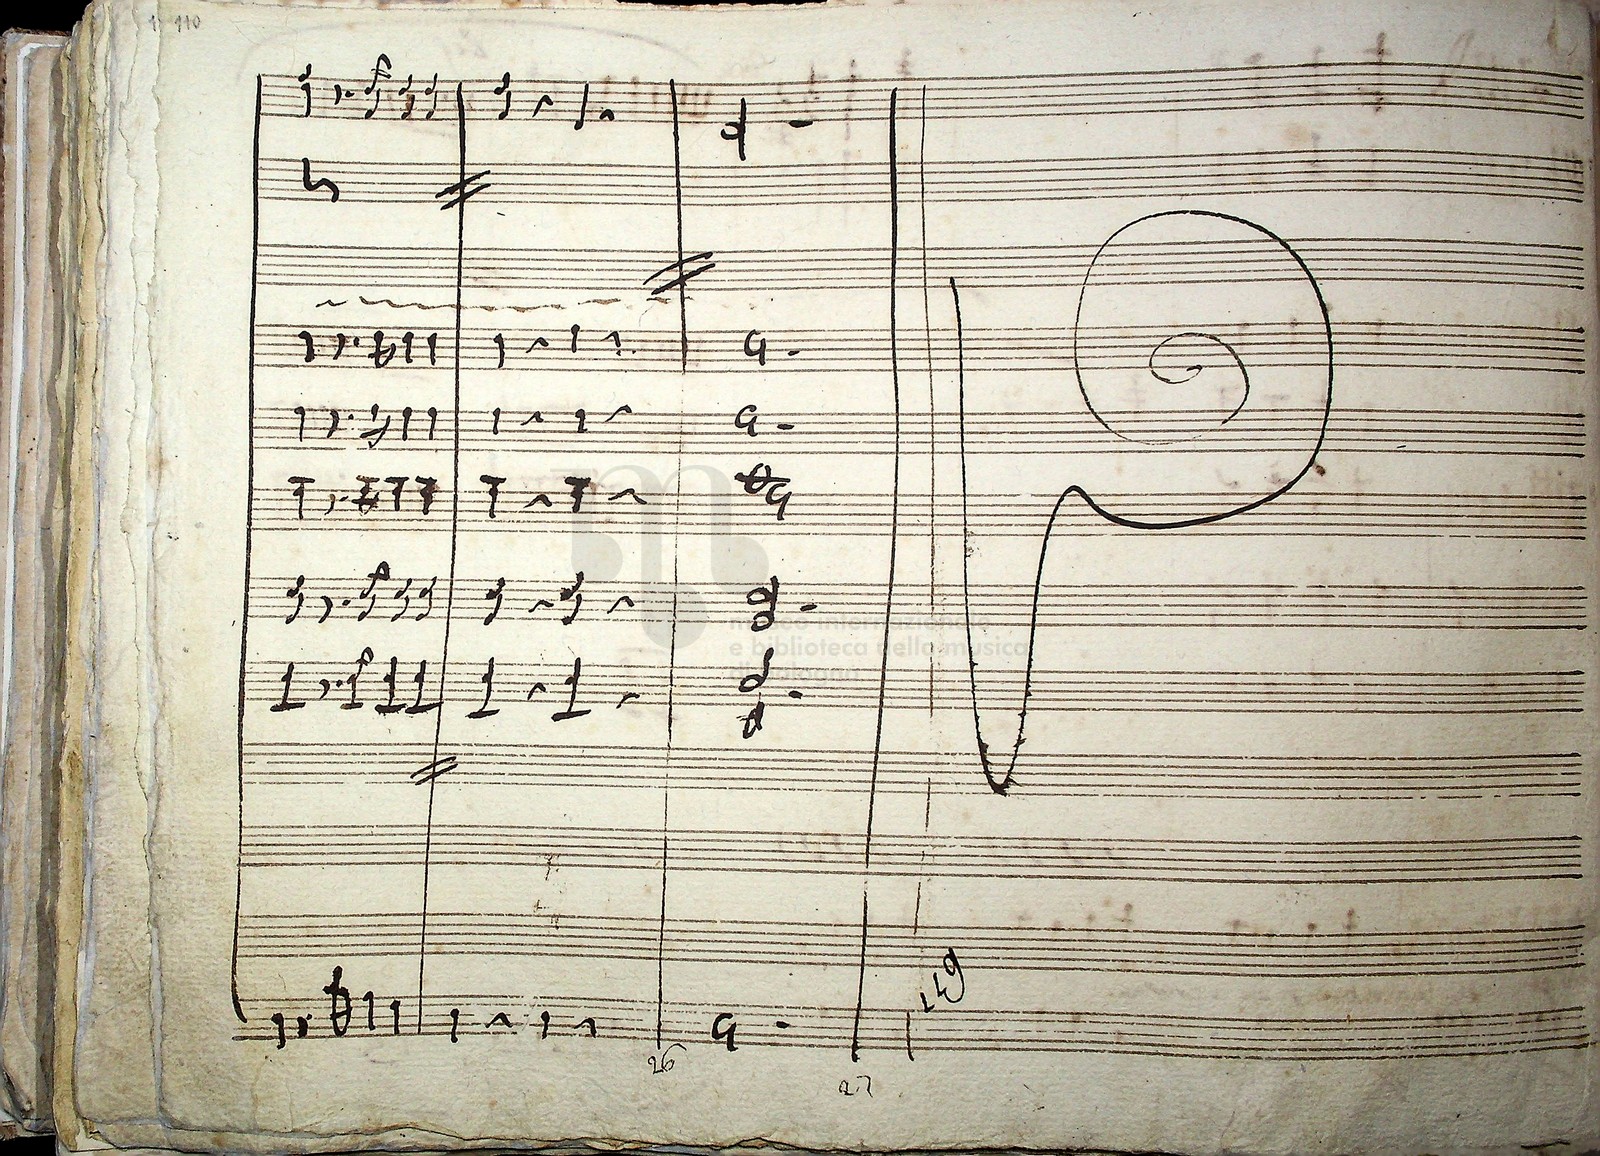 110
m
museo internazionale
e biblioteca della musica
di bologna
26
27